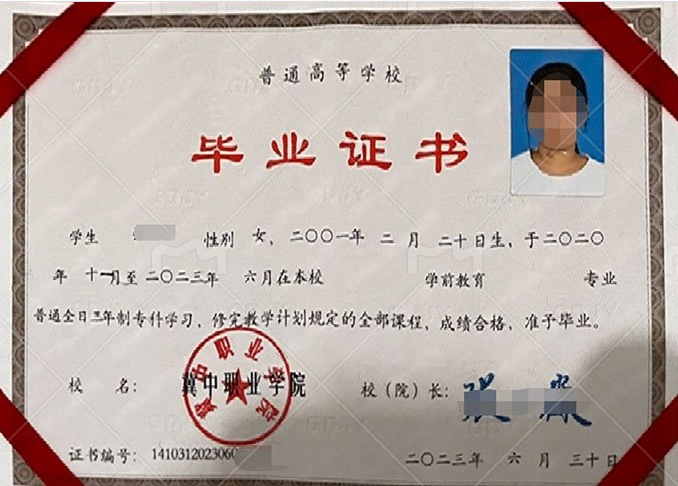 普通高等学校
毕业证书
学生 性别 女，二〇〇一年 二 月 二十日生，于二〇二〇
年 十一月至二〇二三年 六月在本校 学前教育 专业
普通全日三年制专科学习，修完教学计划规定的全部课程，成绩合格，准予毕业。
校 名： 冀中职业学院 校（院）长：
证书编号： 1410312023060
二〇二三年 六 月 三十日